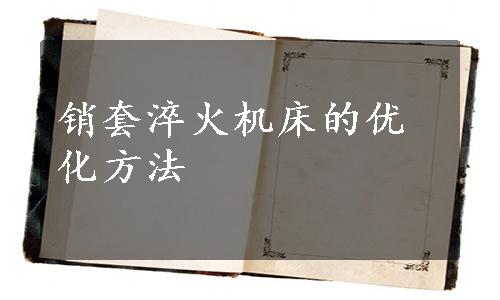 销套淬火机床的优
化方法